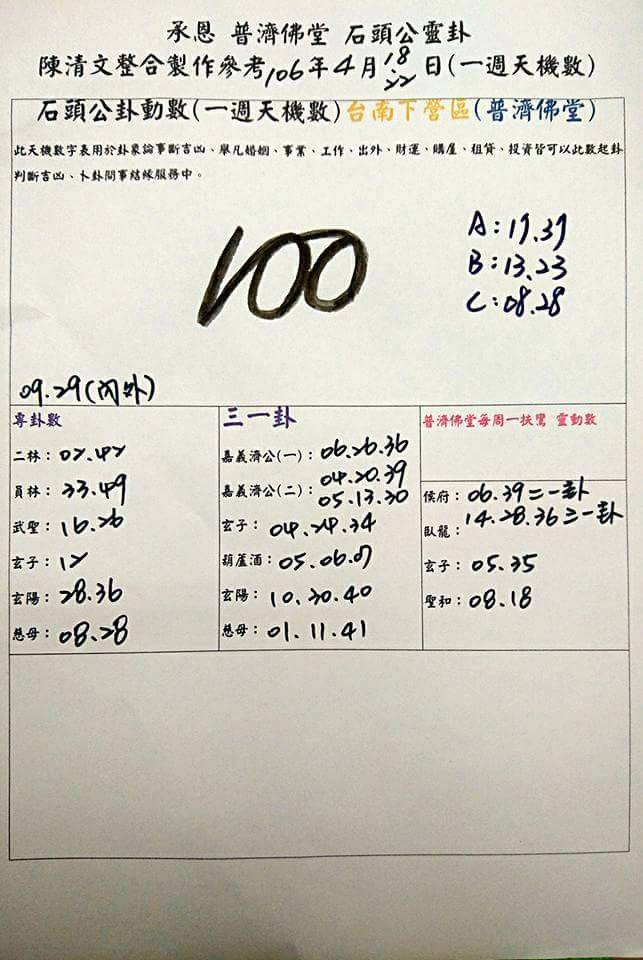 承恩 普濟佛堂 石頭公靈卦
陳清文整合製作參考106年4月18 22日(一週天機數)
石頭公卦動數(一週天機數)台南下營區(普濟佛堂)
此天機数字表用於卦象論事斷吉凶、舉凡婚姻、事業、工作、出外、財運、購屋、租貸、投資皆可以此數起卦
判斷吉凶、卜卦問事結緣服務中。
100
A:19.39
B:13.23
C:08.28
09.29(內外)
專卦數
二林:02.42
員林:33.49
武聖:16.26
玄子:12
玄陽:28.36
慈母:08.28
三一卦
嘉義濟公(一):06.26.36
嘉義濟公(二):04.20.39
05.13.30
玄子:04.24.34
葫蘆酒:05.06.07
玄陽:10.30.40
慈母:01.11.41
普濟佛堂每周一扶鸞 靈動數
侯府:06.39二一卦
臥龍:14.28.36三一卦
玄子:05.35
聖和:08.18